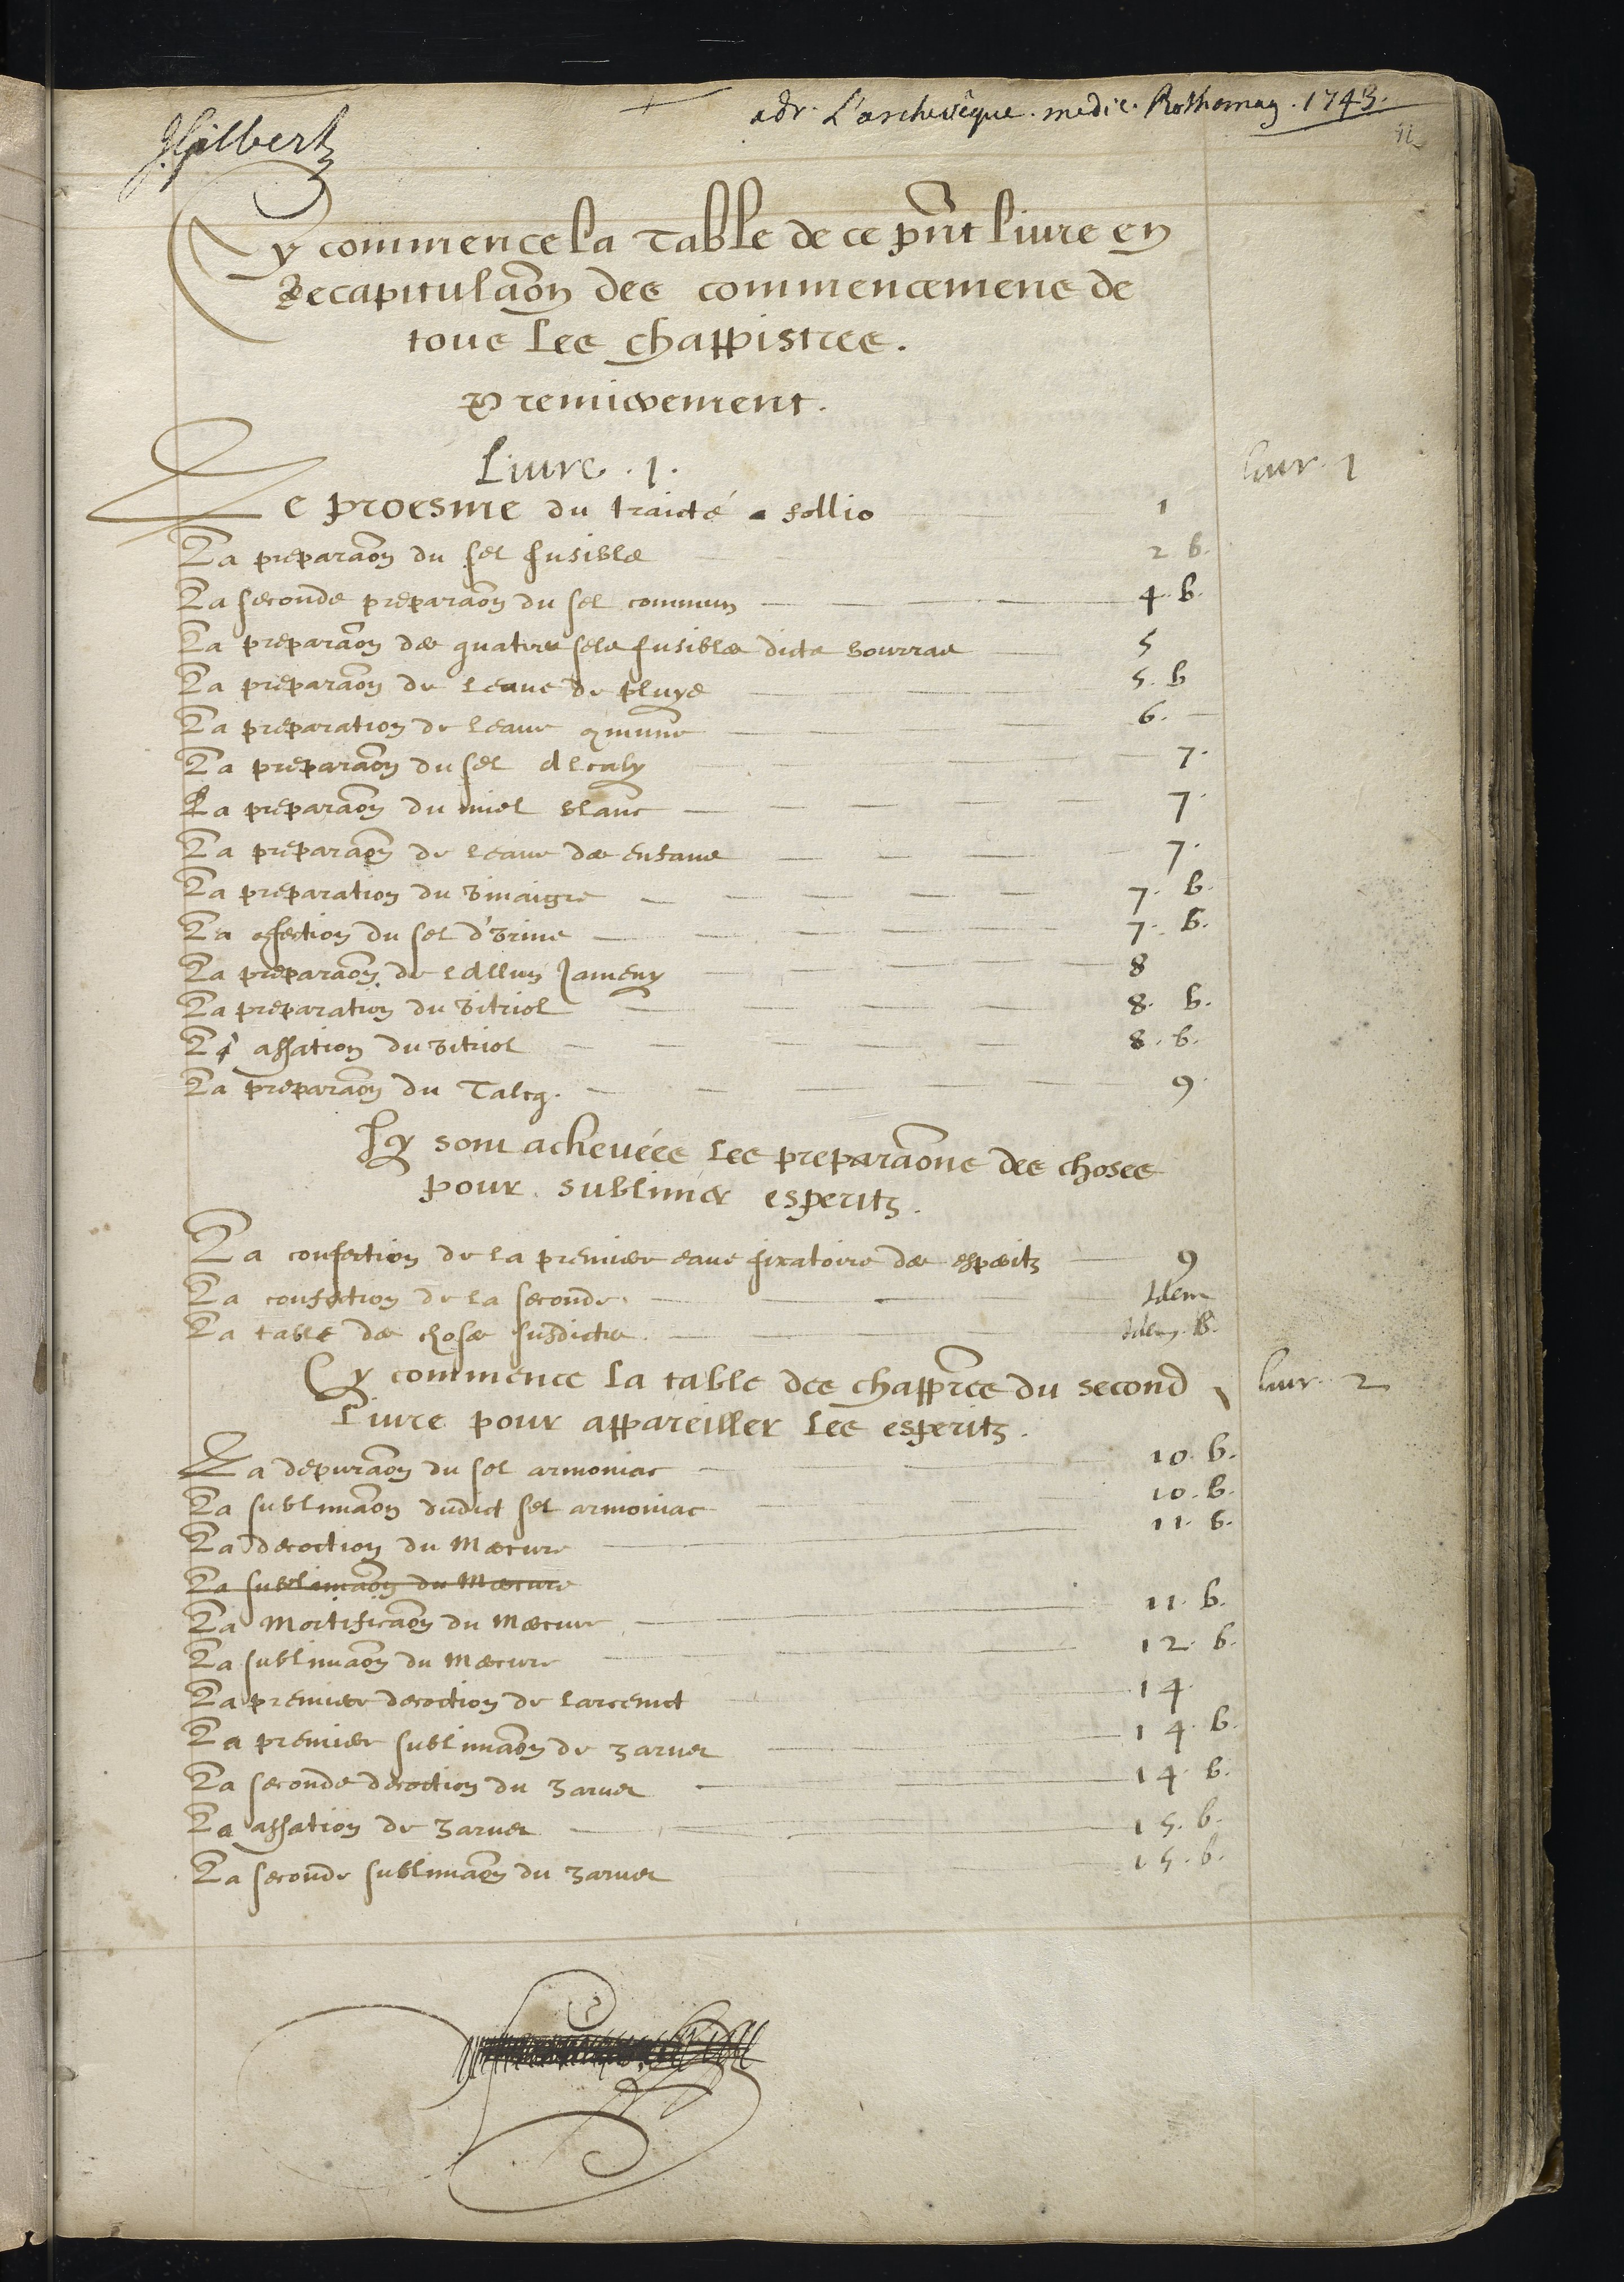 JGilbert
adr. L'archevêque. medic. Rothomag. 1743.
Cy commence la Table de ce pn̄t liure en
Recapitulaõn des commencemens de
tous les chappistres.
Premierement.
Liure . 1.
liur. 1
Le proesme du traicté a follio 1
La preparaõn du sel fusible 2 b.
La seconde preparaõn du sel commun 4. b.
La preparaõn des quatre sels fusibles dicts bourras 5
La preparaõn de leaue de pluye 5. b
La preparation de leaue 9mune 6.
La preparaõn du sel alcaly 7.
La preparaõn du miel blanc 7.
La preparaõn de leaue des enfans 7.
La preparation du vinaigre 7. b.
La 9fection du sel d'vrine 7. b.
La preparaõn de lallun Jameny 8
La preparation du vitriol 8. b.
La assation du vitriol 8. b.
La preparaõn du Talcq. 9
Icy sont acheuées les preparaõns des choses
pour sublimer esperitz.
La confection de la premiere eaue fixatoire des esperitz 9
La confection de la seconde. Idem
La table des choses susdictes. Idem. B.
Cy commence la table des chapp̃res du second
liur. 2
Liure pour appareiller les esperitz.
La depuraõn du sel armoniac 10. b.
La sublimaõn dudict sel armoniac 10. b.
La decoction du Mercure 11. b.
La sublimaõn du Mercure
La Mortificaõn du Mercure 11. b.
La sublimaõn du Mercure 12. b.
La premiere decoction de larcenict 14.
La premiere sublimaõn de zarnet 14. b.
La seconde decoction du zarnet 14. b.
La assation de zarnet 15. b.
La seconde sublimaõn du zarnet 15. b.